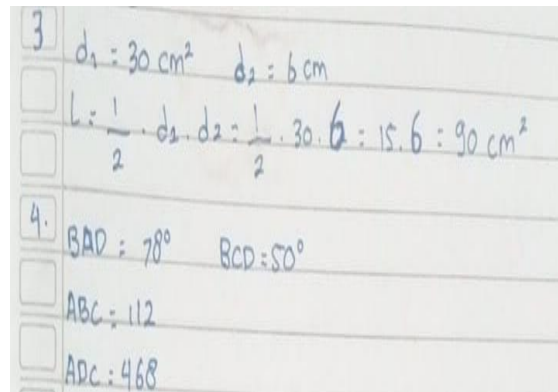 3 d₁ = 30 cm² d₂ = 6 cm
L = 1/2 . d₁ . d₂ = 1/2 . 30 . 6 = 15 . 6 = 90 cm²
4. BAD = 78° BCD = 50°
ABC = 112
ADC = 468